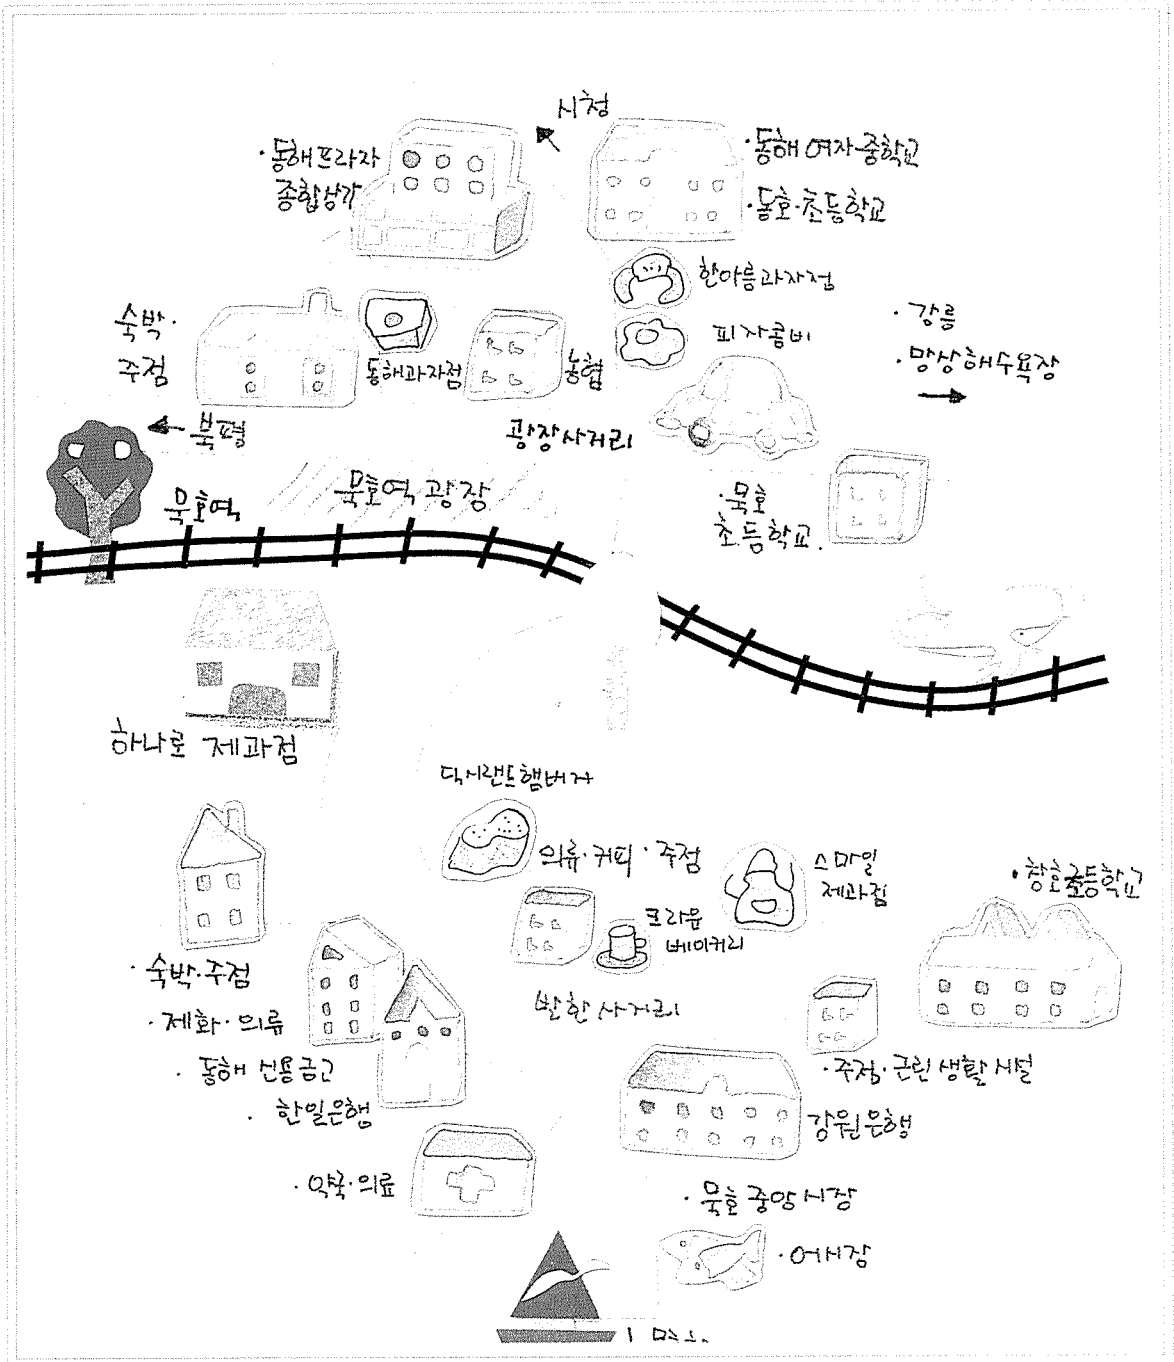 시청
·동해프라자
종합상가
·동해 여자·중학교
·동호·초등학교
한아름과자점
피자콤비
·강릉
·망상해수욕장
숙박·
주점
동해과자점
농협
북평
광장사거리
묵호역
묵호역 광장
·묵호
초등학교.
하나로 제과점
딕시랜드햄버거
의류·커피·주점
스마일
제과점
크라운
베이커리
·창호초등학교
·숙박·주점
·제화·의류
·동해 신용금고
·한일은행
발한 사거리
·주점·근린 생활 시설
강원은행
·약국·의료
·묵호 중앙시장
·어시장